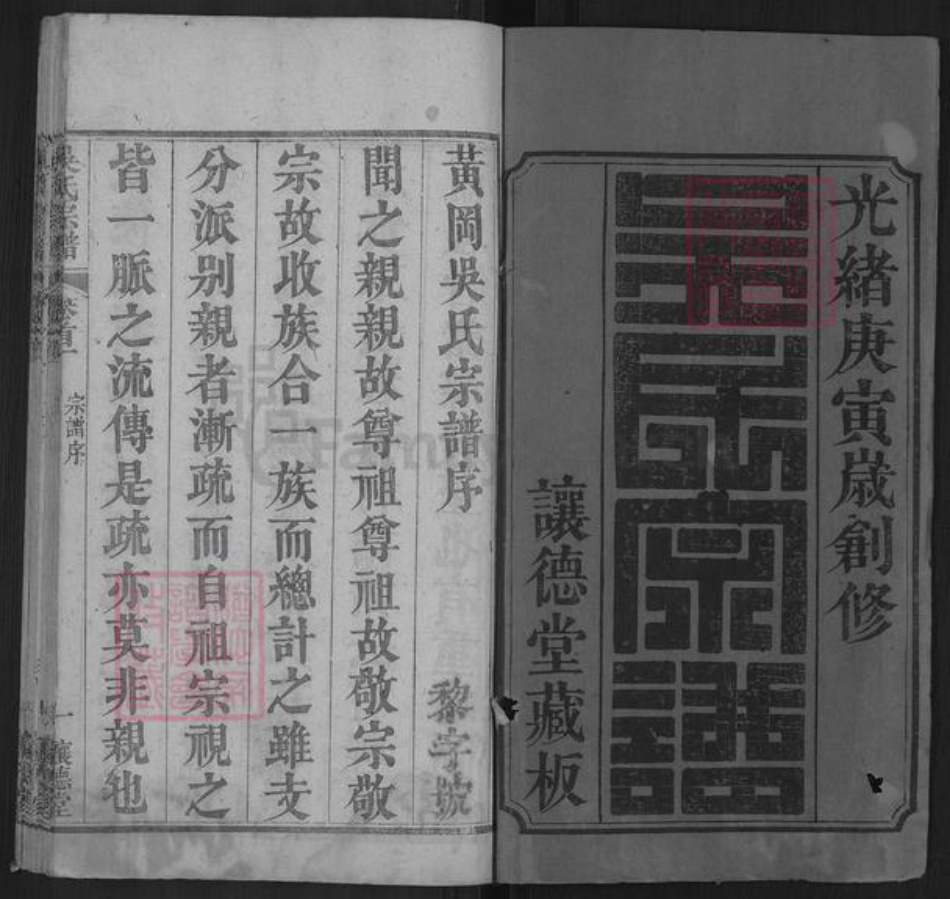 光緒庚寅歲創修
吳氏宗譜
讓德堂藏板
黃岡吳氏宗譜序
黎字號
聞之親親故尊祖尊祖故敬宗敬
宗故收族合一族而總計之雖支
分派别親者漸疏而自祖宗視之
皆一脈之流傳是疏亦莫非親也
吳氏宗譜
卷首一
宗譜序
一
讓德堂